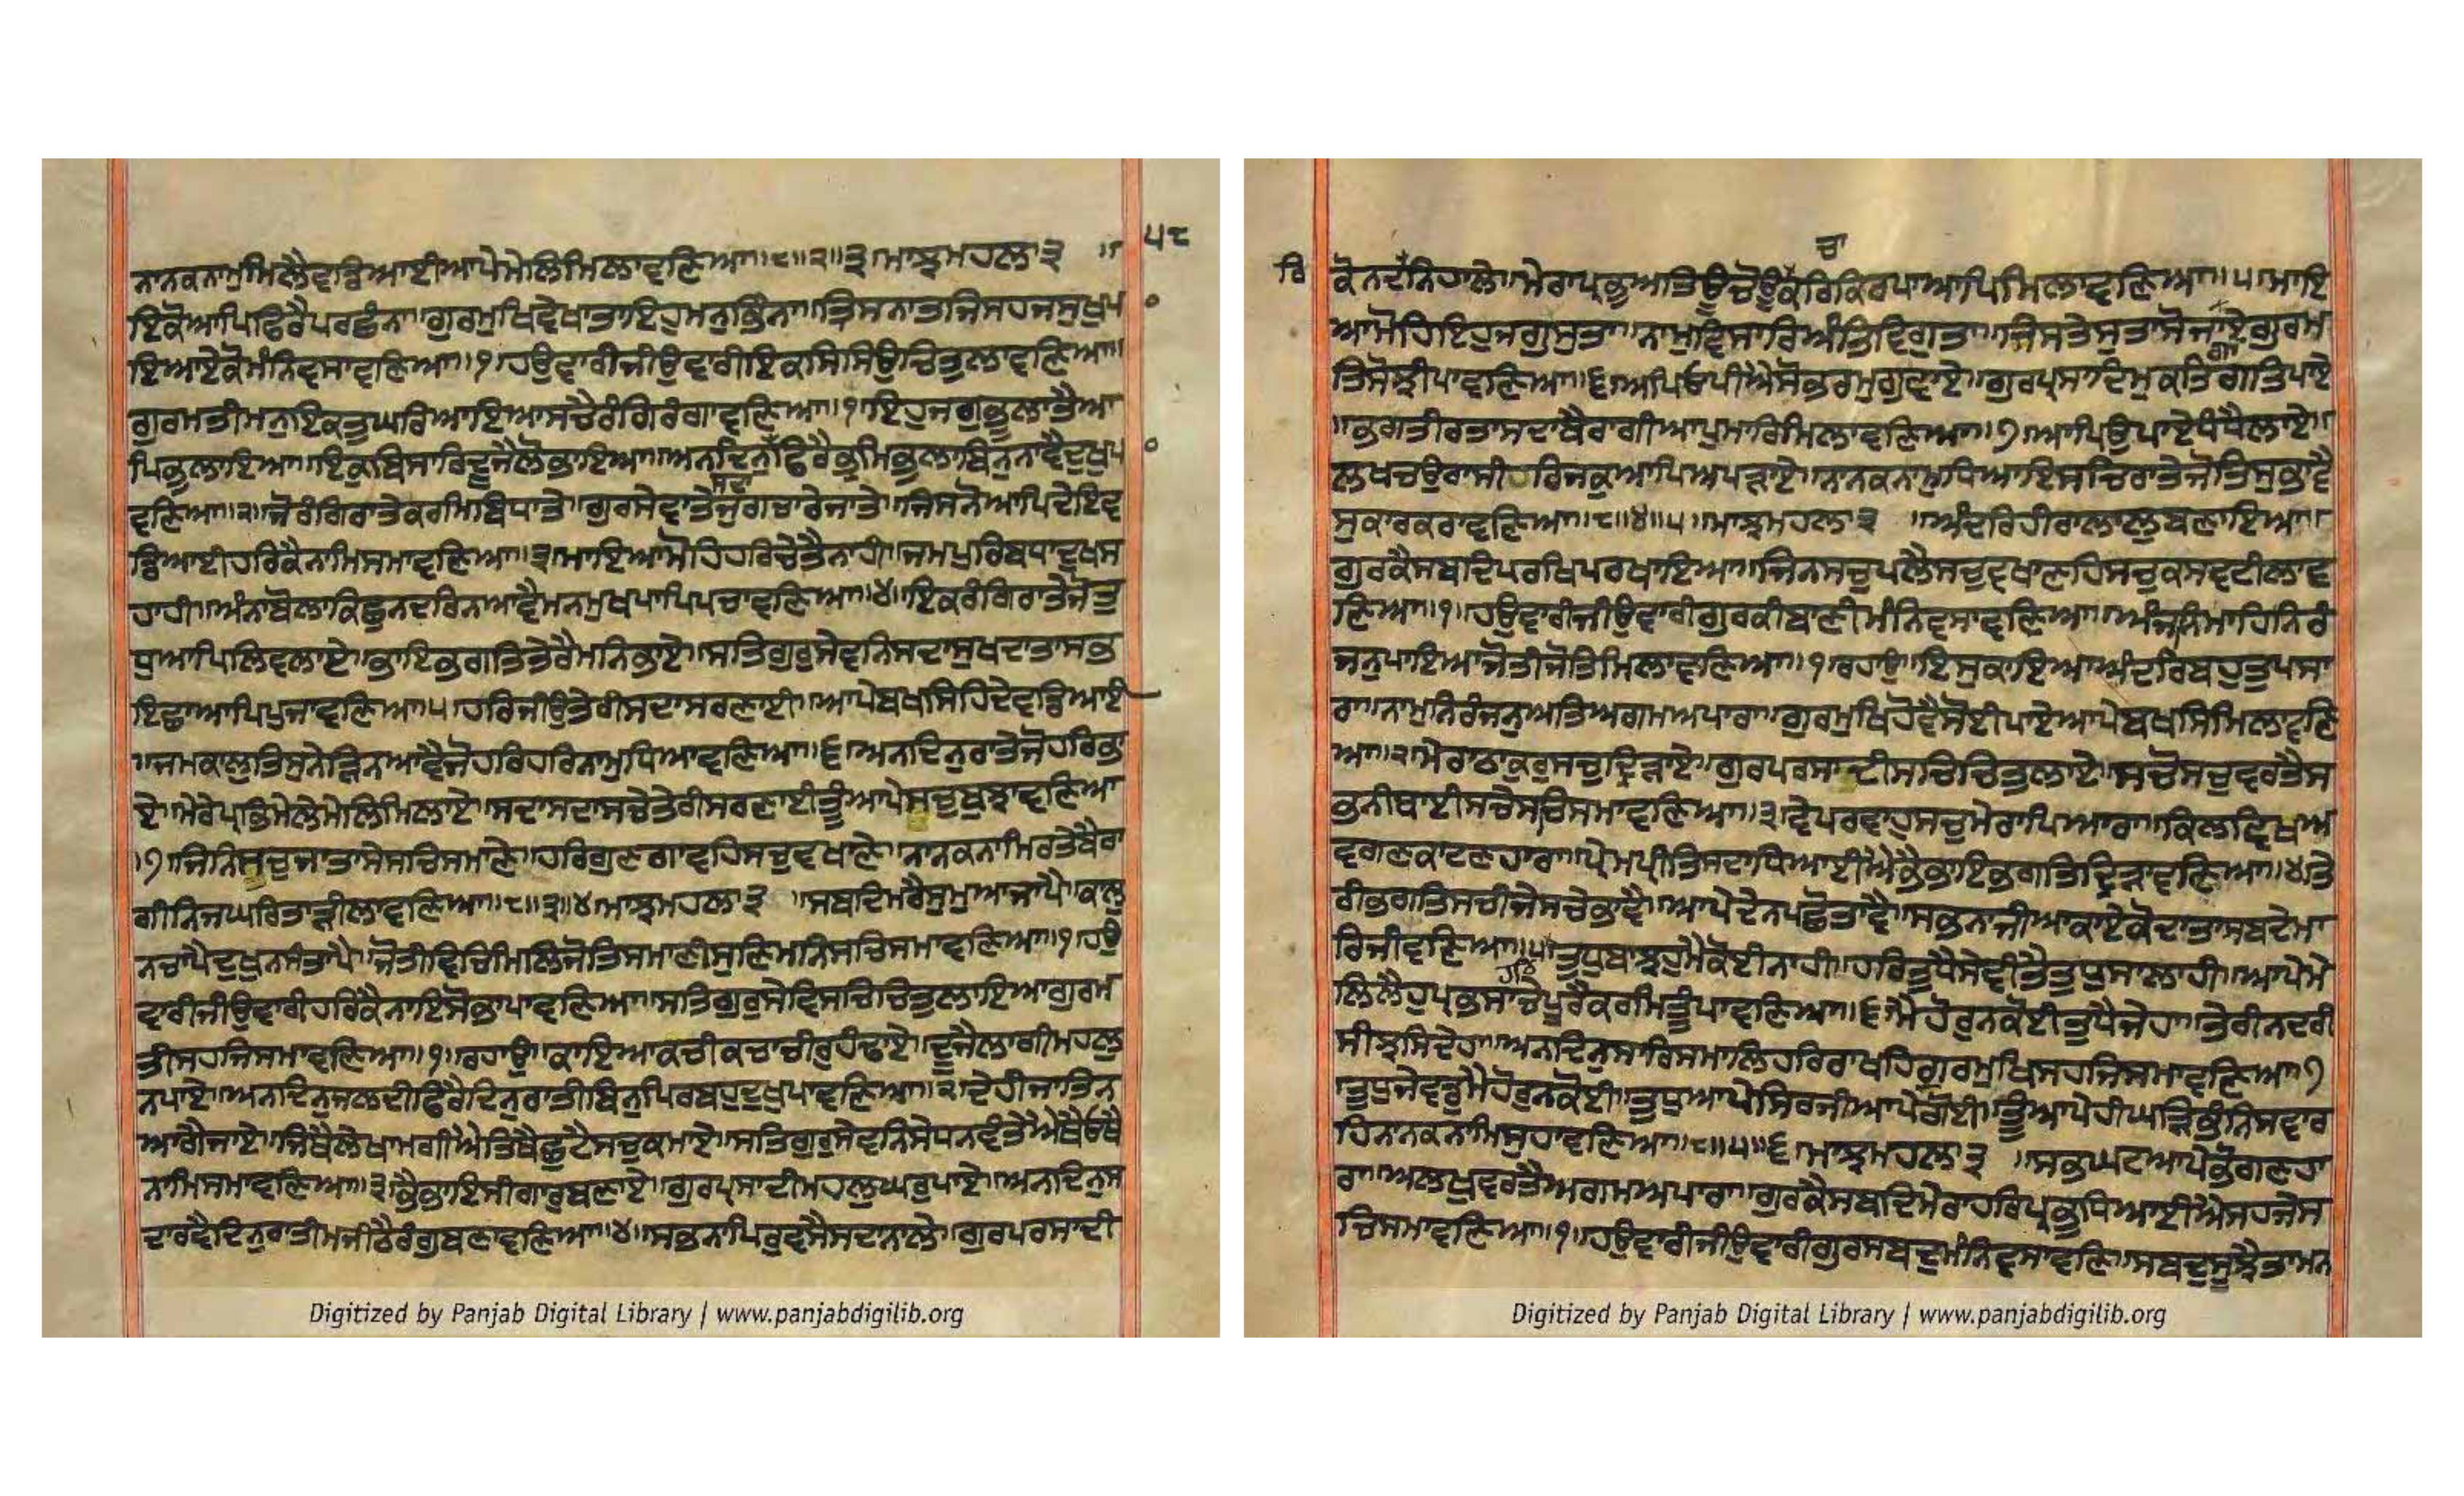 ੫੮
ਨਾਨਕਨਾਮੁਮਿਲੈਵਡਿਆਈਆਪੇਮੇਲਿਮਿਲਾਵਣਿਆ॥੮॥੨॥੩ਮਾਝਮਹਲਾ੩ ॥
ਇਕੋਆਪਿਫਿਰੈਪਰਛੰਨਾ॥ਗੁਰਮੁਖਿਵੇਖਾਤਾਇਹੁਮਨੁਭਿੰਨਾ॥ਤ੍ਰਿਸਨਾਤਜਿਸਹਜਸੁਖੁਪਾ
ਇਆਏਕੋਮੰਨਿਵਸਾਵਣਿਆ॥੧॥ਹਉਵਾਰੀਜੀਉਵਾਰੀਇਕਸਿਸਿਉਚਿਤੁਲਾਵਣਿਆ॥
ਗੁਰਮਤੀਮਨੁਇਕਤੁਘਰਿਆਇਆਸਚੈਰੰਗਿਰੰਗਾਵਣਿਆ॥੧॥ਇਹੁਜਗੁਭੂਲਾਤੈਆ
ਪਿਭੁਲਾਇਆ॥ਇਕੁਵਿਸਾਰਿਦੂਜੈਲੋਭਾਇਆ॥ਅਨਦਿਨੁਫਿਰੈਭ੍ਰਮਿਭੁਲਾਬਿਨੁਨਾਵੈਦੁਖੁਪਾ
ਵਣਿਆ॥੨॥ਜੋਰੰਗਿਰਾਤੇਕਰਮਿਬਿਧਾਤੇ॥ਗੁਰਸੇਵਾਤੇਜੁਗਚਾਰੇਜਾਤੇ॥ਜਿਸਨੋਆਪਿਦੇਇਵ
ਡਿਆਈਹਰਿਕੈਨਾਮਿਸਮਾਵਣਿਆ॥੩॥ਮਾਇਆਮੋਹਿਹਰਿਚੇਤੈਨਾਹੀ॥ਜਮਪੁਰਿਬਧਾਦੁਖਸ
ਹਾਹੀ॥ਅੰਨਾਬੋਲਾਕਿਛੁਨਦਰਿਨਆਵੈਮਨਮੁਖਪਾਪਿਪਚਾਵਣਿਆ॥੪॥ਇਕਰੰਗਿਰਾਤੇਜੋਤੁ
ਧੁਆਪਿਲਿਵਲਾਏ॥ਭਾਇਭਗਤਿਤੇਰੈਮਨਿਭਾਏ॥ਸਤਿਗੁਰੁਸੇਵਨਿਸਦਾਸੁਖਦਾਤਾਸਭ
ਇਛਾਆਪਿਪੁਜਾਵਣਿਆ॥੫॥ਹਰਿਜੀਉਤੇਰੀਸਦਾਸਰਣਾਈ॥ਆਪੇਬਖਸਿਹਿਦੇਵਡਿਆਈ
॥ਜਮਕਾਲੁਤਿਸੁਨੇੜਿਨਆਵੈਜੋਹਰਿਹਰਿਨਾਮੁਧਿਆਵਣਿਆ॥੬॥ਅਨਦਿਨੁਰਾਤੇਜੋਹਰਿਭਾ
ਏ॥ਮੇਰੇਪ੍ਰਭਿਮੇਲੇਮੇਲਿਮਿਲਾਏ॥ਸਦਾਸਦਾਸਚੇਤੇਰੀਸਰਣਾਈਤੂੰਆਪੇਸਚੁਬੁਝਾਵਣਿਆ
॥੭॥ਜਿਨਿਸਚੁਜਾਤਾਸੇਸਚਿਸਮਾਣੇ॥ਹਰਿਗੁਣਗਾਵਹਿਸਚੁਵਖਾਣੇ॥ਨਾਨਕਨਾਮਿਰਤੇਬੈਰਾ
ਗੀਨਿਜਘਰਿਤਾੜੀਲਾਵਣਿਆ॥੮॥੩॥੪ਮਾਝਮਹਲਾ੩ ॥ਸਬਦਿਮਰੈਸੁਮੁਆਜਾਪੈ॥ਕਾਲੁ
ਨਚਾਪੈਦੁਖੁਨਸੰਤਾਪੈ॥ਜੋਤੀਵਿਚਿਮਿਲਿਜੋਤਿਸਮਾਣੀਸੁਣਿਮਨਿਸਚਿਸਮਾਵਣਿਆ॥੧॥ਹਉ
ਵਾਰੀਜੀਉਵਾਰੀਹਰਿਕੈਨਾਇਸੋਭਾਪਾਵਣਿਆ॥ਸਤਿਗੁਰੁਸੇਵਿਸਚਿਚਿਤੁਲਾਇਆਗੁਰਮ
ਤੀਸਹਜਿਸਮਾਵਣਿਆ॥੧॥ਰਹਾਉ॥ਕਾਇਆਕਚੀਕਚਾਚੀਰੁਹੰਢਾਏ॥ਦੂਜੈਲਾਗੀਮਹਲੁ
ਨਪਾਏ॥ਅਨਦਿਨੁਜਲਦੀਫਿਰੈਦਿਨੁਰਾਤੀਬਿਨੁਪਿਰਬਹੁਦੁਖੁਪਾਵਣਿਆ॥੨॥ਦੇਹੀਜਾਤਿਨ
ਆਗੈਜਾਏ॥ਜਿਥੈਲੇਖਾਮਗੀਐਤਿਥੈਛੁਟੈਸਚੁਕਮਾਏ॥ਸਤਿਗੁਰੁਸੇਵਨਿਸੇਧਨਵੰਤੇਐਥੈਓਥੈ
ਨਾਮਿਸਮਾਵਣਿਆ॥੩॥ਭੈਭਾਇਸੀਗਾਰੁਬਣਾਏ॥ਗੁਰਪ੍ਰਸਾਦੀਮਹਲੁਘਰੁਪਾਏ॥ਅਨਦਿਨੁਸ
ਦਾਰਵੈਦਿਨੁਰਾਤੀਮਜੀਠੈਰੰਗੁਬਣਾਵਣਿਆ॥੪॥ਸਭਨਾਪਿਰੁਵਸੈਸਦਾਨਾਲੇ॥ਗੁਰਪਰਸਾਦੀ
Digitized by Panjab Digital Library | www.panjabdigilib.org
ਚਾ
ਰਿ
ਕੋਨਦਨਿਹਾਲੇ॥ਮੇਰਾਪ੍ਰਭੁਅਤਿਊਚੋਊਕਰਿਕਿਰਪਾਆਪਿਮਿਲਾਵਣਿਆ॥੫॥ਮਾਇ
ਆਮੋਹਿਇਹੁਜਗੁਸੁਤਾ॥ਨਾਮੁਵਿਸਾਰਿਅੰਤਿਵਿਗੁਤਾ॥ਜਿਸਤੇਸੁਤਾਸੋਜਾਏਗੁਰਮ
ਤਿਸੋਝੀਪਾਵਣਿਆ॥੬॥ਅਪਿਓਪੀਐਸੋਭਰਮੁਗਵਾਏ॥ਗੁਰਪ੍ਰਸਾਦਿਮੁਕਤਿਗਤਿਪਾਏ
॥ਭਗਤੀਰਤਾਸਦਾਬੈਰਾਗੀਆਪੁਮਾਰਿਮਿਲਾਵਣਿਆ॥੭॥ਆਪਿਉਪਾਏਧੰਧੈਲਾਏ॥
ਲਖਚਉਰਾਸੀਰਿਜਕੁਆਪਿਅਪੜਾਏ॥ਨਾਨਕਨਾਮੁਧਿਆਇਸਚਿਰਾਤੇਜੋਤਿਸੁਭਾਵੈ
ਸੁਕਾਰਕਰਾਵਣਿਆ॥੮॥੪॥੫॥ਮਾਝਮਹਲਾ੩ ॥ਅੰਦਰਿਹੀਰਾਲਾਲੁਬਣਾਇਆ॥
ਗੁਰਕੈਸਬਦਿਪਰਖਿਪਰਖਾਇਆ॥ਜਿਨਸਚੁਪਲੈਸਚੁਵਖਾਣਹਿਸਚੁਕਸਵਟੀਲਾਵ
ਣਿਆ॥੧॥ਹਉਵਾਰੀਜੀਉਵਾਰੀਗੁਰਕੀਬਾਣੀਮੰਨਿਵਸਾਵਣਿਆ॥ਅੰਜਨਮਾਹਿਨਿਰੰ
ਜਨੁਪਾਇਆਜੋਤੀਜੋਤਿਮਿਲਾਵਣਿਆ॥੧॥ਰਹਾਉ॥ਇਸੁਕਾਇਆਅੰਦਰਿਬਹੁਤੁਪਸਾ
ਰਾ॥ਨਾਮੁਨਿਰੰਜਨੁਅਤਿਅਗਮਅਪਾਰਾ॥ਗੁਰਮੁਖਿਹੋਵੈਸੋਈਪਾਏਆਪੇਬਖਸਿਮਿਲਾਵਣਿ
ਆ॥੨॥ਮੇਰਾਠਾਕੁਰੁਸਚੁਦ੍ਰਿੜਾਏ॥ਗੁਰਪਰਸਾਦੀਸਚਿਚਿਤੁਲਾਏ॥ਸਚੋਸਚੁਵਰਤੈਸ
ਭਨੀਥਾਈਸਚੇਸਚਿਸਮਾਵਣਿਆ॥੩॥ਵੇਪਰਵਾਹੁਸਚੁਮੇਰਾਪਿਆਰਾ॥ਕਿਲਵਿਖਅ
ਵਗਣਕਾਟਣਹਾਰਾ॥ਪ੍ਰੇਮਪ੍ਰੀਤਿਸਦਾਧਿਆਈਐਭੈਭਾਇਭਗਤਿਦ੍ਰਿੜਾਵਣਿਆ॥੪॥ਤੇ
ਰੀਭਗਤਿਸਚੀਜੇਸਚੇਭਾਵੈ॥ਆਪੇਦੇਨਪਛੋਤਾਵੈ॥ਸਭਨਾਜੀਆਕਾਏਕੋਦਾਤਾਸਬਦੇਮਾ
ਰਿਜੀਵਣਿਆ॥੫॥ਤੁਧੁਬਾਝਹੁਮੈਕੋਈਨਾਹੀ॥ਹਰਿਤੁਧੈਸੇਵੀਤੈਤੁਧੁਸਾਲਾਹੀ॥ਆਪੇਮੇ
ਲਿਲੈਹੁਪ੍ਰਭਸਾਚੇਪੂਰੈਕਰਮਿਤੂੰਪਾਵਣਿਆ॥੬॥ਮੈਹੋਰੁਨਕੋਈਤੁਧੈਜੇਹਾ॥ਤੇਰੀਨਦਰੀ
ਸੀਝਸਿਦੇਹਾ॥ਅਨਦਿਨੁਸਾਰਿਸਮਾਲਿਹਰਿਰਾਖਹਿਗੁਰਮੁਖਿਸਹਜਿਸਮਾਵਣਿਆ॥੭
॥ਤੁਧੁਜੇਵਡੁਮੈਹੋਰੁਨਕੋਈ॥ਤੁਧੁਆਪੇਸਿਰਜੀਆਪੇਗੋਈ॥ਤੂੰਆਪੇਹੀਘੜਿਭੰਨਿਸਵਾਰ
ਹਿਨਾਨਕਨਾਮਿਸੁਹਾਵਣਿਆ॥੮॥੫॥੬ਮਾਝਮਹਲਾ੩ ॥ਸਭਘਟਆਪੇਭੋਗਣਹਾ
ਰਾ॥ਅਲਖੁਵਰਤੈਅਗਮਅਪਾਰਾ॥ਗੁਰਕੈਸਬਦਿਮੇਰਾਹਰਿਪ੍ਰਭੁਧਿਆਈਐਸਹਜੇਸ
ਚਿਸਮਾਵਣਿਆ॥੧॥ਹਉਵਾਰੀਜੀਉਵਾਰੀਗੁਰਸਬਦੁਮੰਨਿਵਸਾਵਣਿ॥ਸਬਦੁਸੂਝੈਤਾਮਨ
Digitized by Panjab Digital Library | www.panjabdigilib.org